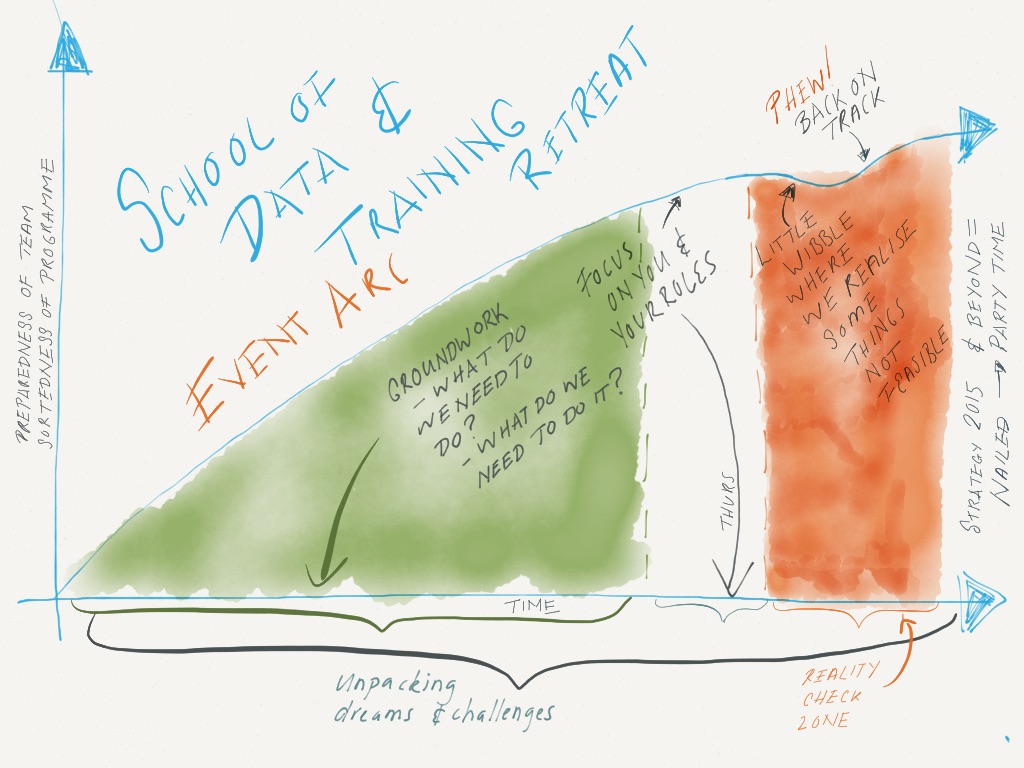 SCHOOL OF
DATA &
TRAINING
RETREAT
EVENT ARC
PREPAREDNESS OF TEAM
SORTEDNESS OF PROGRAMME
GROUNDWORK
- WHAT DO
WE NEED TO
DO?
- WHAT DO WE
NEED TO DO IT?
FOCUS
ON YOU &
YOUR ROLES
THURS
PHEW!
BACK ON
TRACK
LITTLE
WIBBLE
WHERE
WE REALISE
SOME
THINGS
NOT
FEASIBLE
STRATEGY 2015 & BEYOND =
NAILED → PARTY TIME
TIME
Unpacking
dreams & challenges
REALITY
CHECK
ZONE